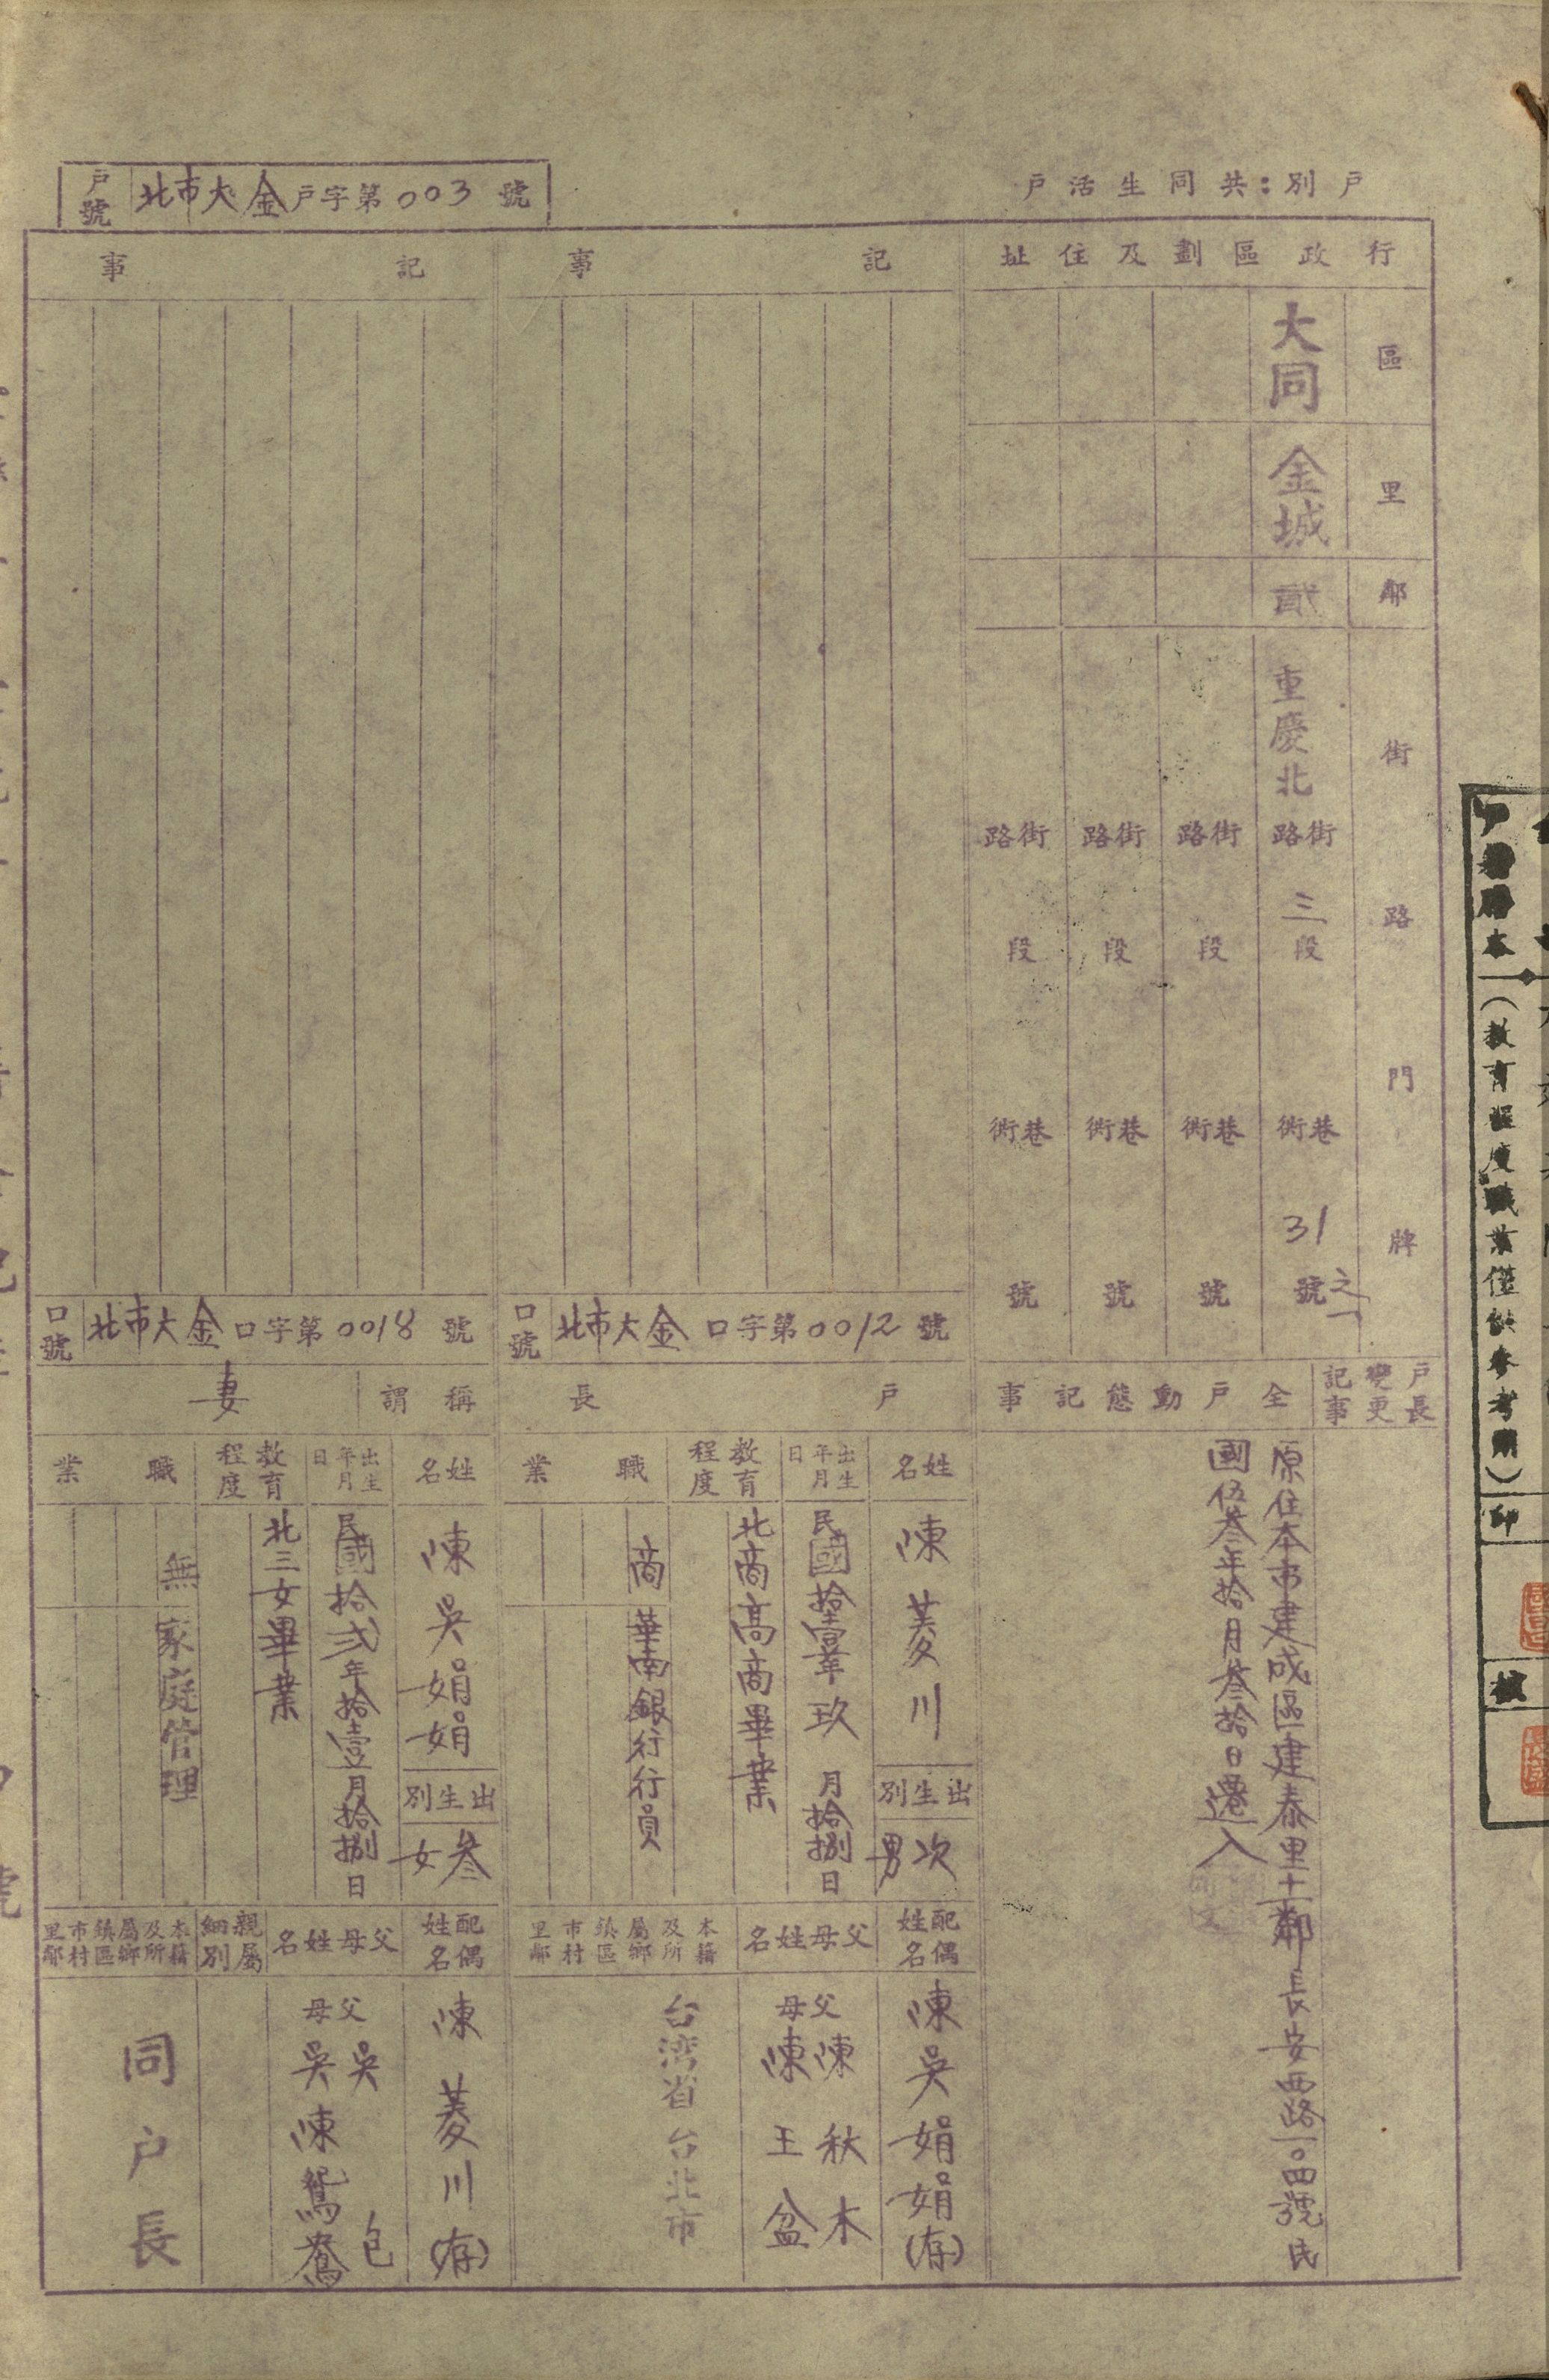 戶別:共同生活戶
戶號 北市大金戶字第003號
行政區劃及住址
區 大同
里 金城
鄰 貳
街路門牌
重慶北 街路 三段 巷衖 31號之一
街路 段 巷衖 號
街路 段 巷衖 號
街路 段 巷衖 號
戶長變更記事
全戶動態記事
原住本市建成區建泰里十鄰長安西路一〇四號民
國伍叁年拾月叁拾日遷入
記事
口號 北市大金口字第0012號
戶長
姓名 陳菱川
出生別 次男
出生年月日 民國拾壹年玖月拾捌日
教育程度 北商高商畢業
職業 商 華南銀行行員
配偶姓名 陳吳娟娟(存)
父母姓名 父 陳秋木
母 陳王盆
本籍及所屬鄉鎮區市村里鄰 台湾省台北市
記事
口號 北市大金口字第0018號
稱謂 妻
姓名 陳吳娟娟
出生別 叁女
出生年月日 民國拾弍年拾壹月拾捌日
教育程度 北三女畢業
職業 無 家庭管理
配偶姓名 陳菱川(存)
父母姓名 父 吳包
母 吳陳鴛鴦
親屬細別
本籍及所屬鄉鎮區市村里鄰 同戶長
戶籍謄本(教育程度職業僅供參考用)
印
核